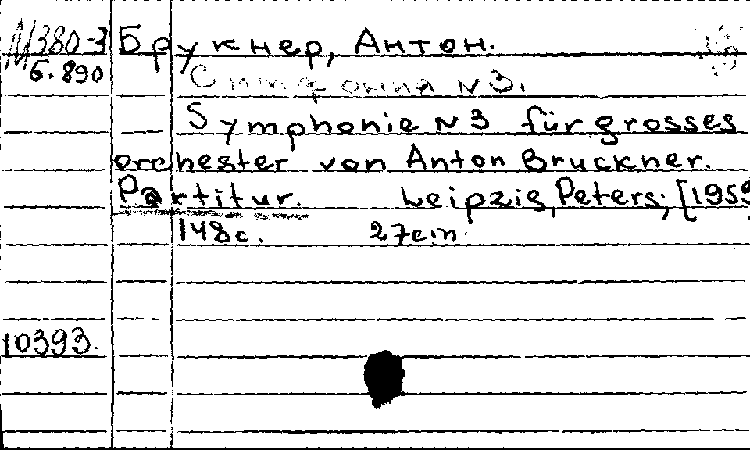 М380-3 Брукнер, Антон.
Б.890
Симфония N3.
Symphonie N3 für grosses
orchester von Anton Bruckner.
Partitur. Leipzig, Peters, [1959
148с. 27cm.
10393.